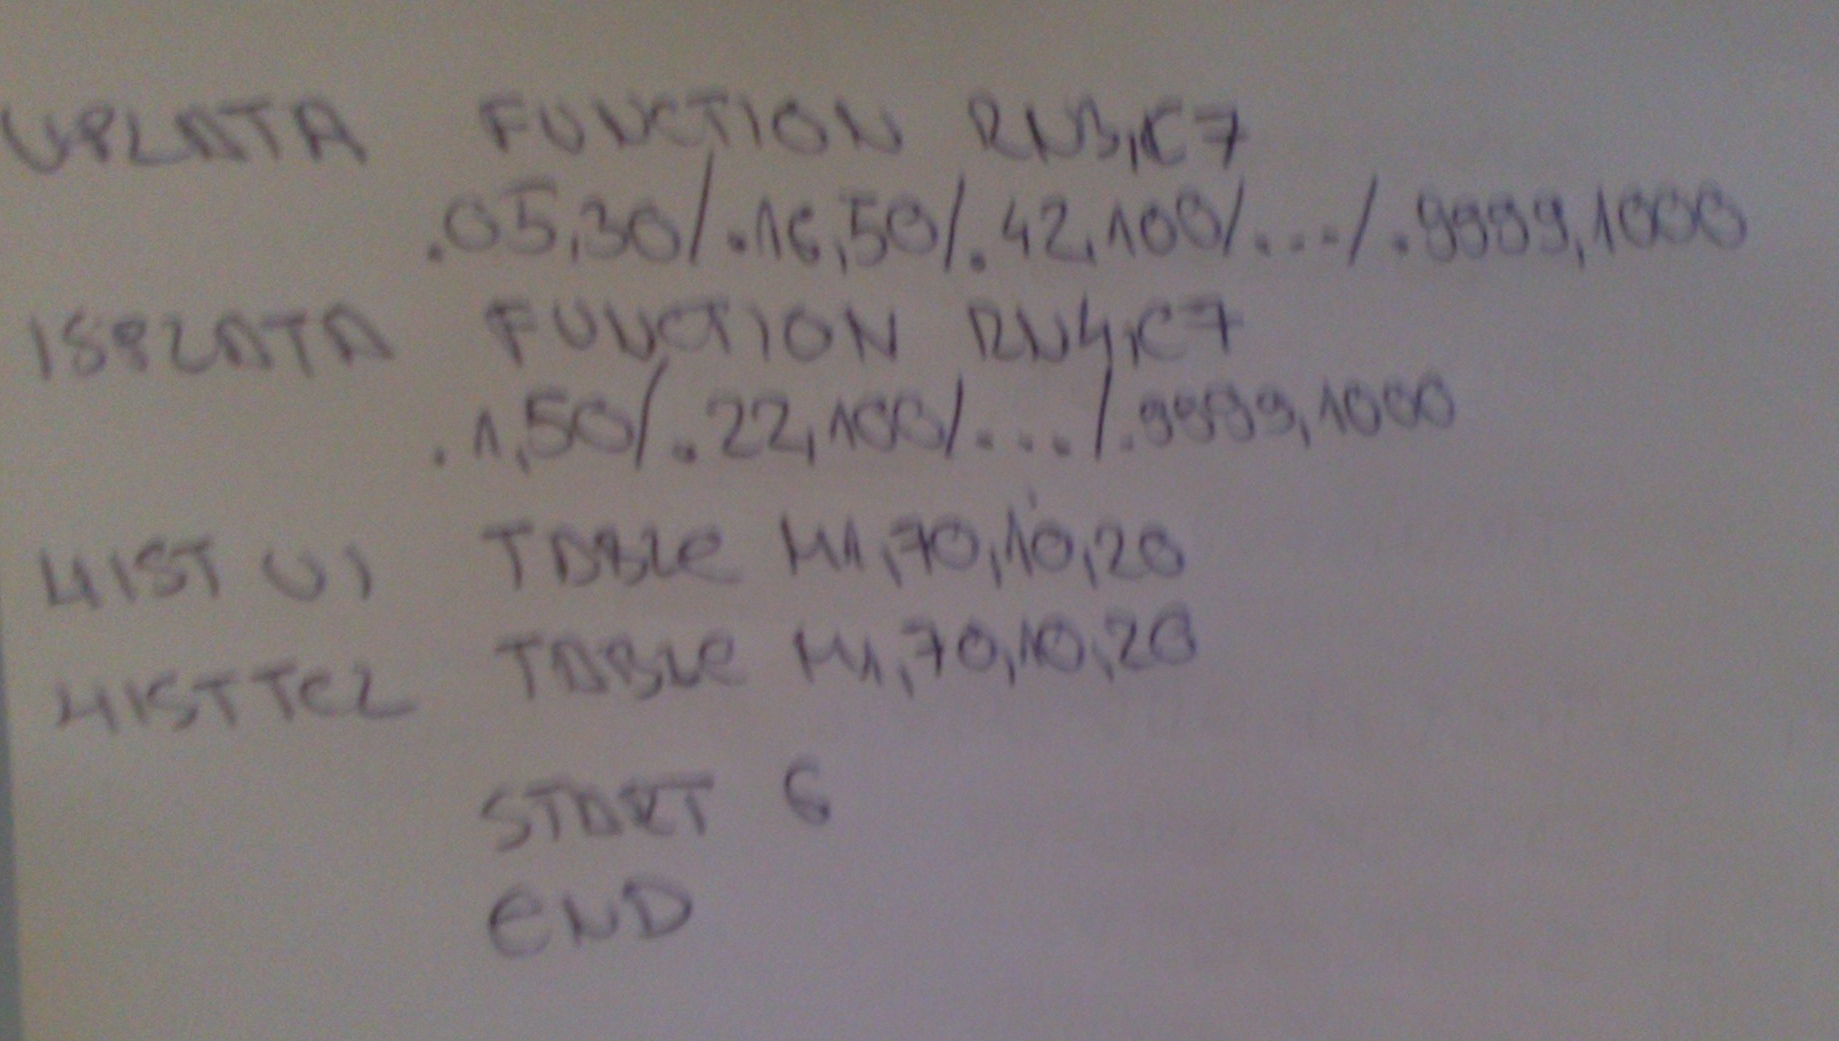 UPLATA FUNCTION RN3,C7
.05,30/.16,50/.42,100/.../.9999,1000
ISPLATA FUNCTION RN4,C7
.1,50/.22,100/.../.9999,1000
HISTU1 TABLE M1,70,10,20
HISTTEL TABLE M1,70,10,20
START 6
END